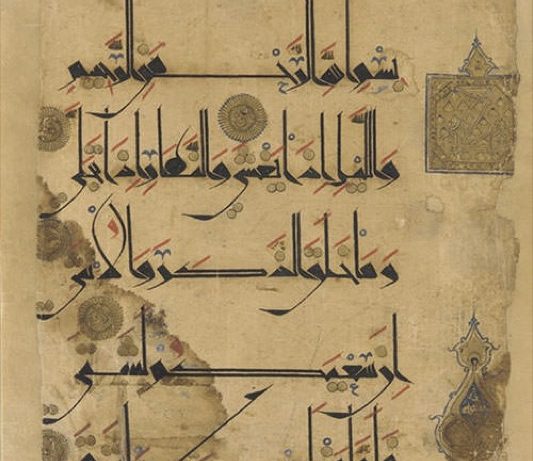 بسم الله الرحمن الرحيم
والليل اذا يغشى والنهار اذا تجلى
وما خلق الذكر والانثى
ان سعيكم لشتى